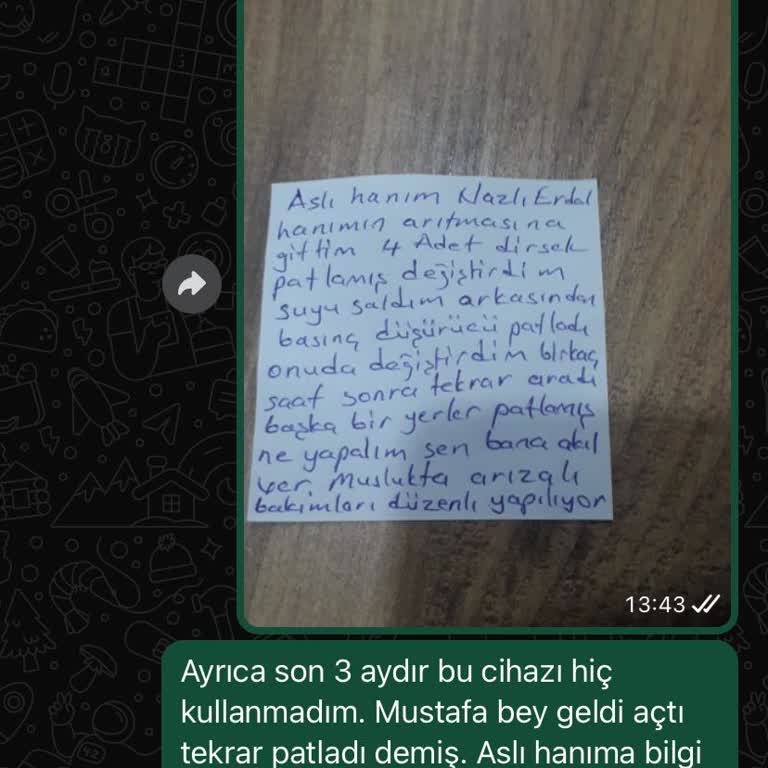 Aslı hanım Nazlı Erdal
hanımın arıtmasına
gittim 4 Adet dirsek
patlamış değiştirdim
suyu saldım arkasından
basınç düşürücü patladı
onuda değiştirdim birkaç
saat sonra tekrar aradı
başka bir yerler patlamış
ne yapalım sen bana akıl
ver. Muslukta arızalı
bakımları düzenli yapılıyor
13:43
Ayrıca son 3 aydır bu cihazı hiç
kullanmadım. Mustafa bey geldi açtı
tekrar patladı demiş. Aslı hanıma bilgi